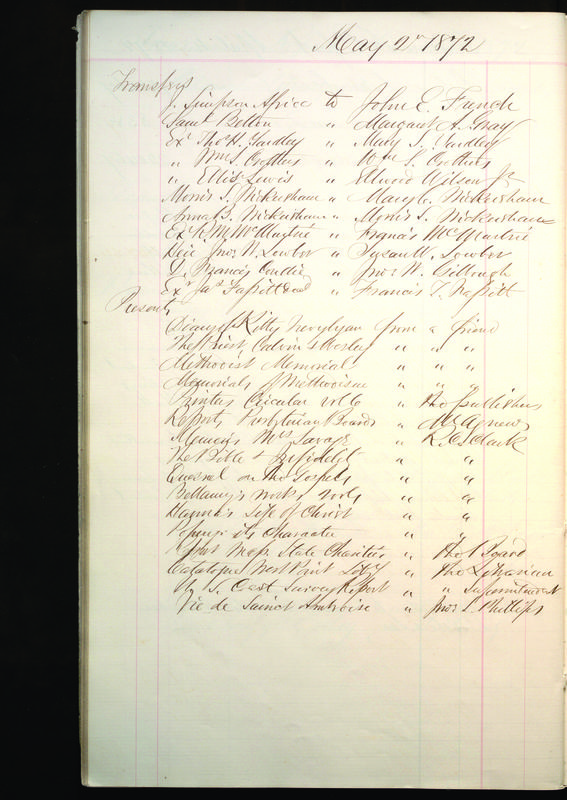 May 2d 1872
Transfers
J. Simpson Africa to John E. French
Saml Betton " Margaret A. Gray
Exr Thos H. Yardley " Mary S. Yardley
" Wm S. Crothers " Wm S. Crothers
" Ellis Lewis " Ellwood Wilson Jr
Morris S. Wickersham " Mary C. Wickersham
Anna B. Wickersham " Morris S. Wickersham
Ex R. M. McMurtrie " Francis McMurtrie
Heir Jno. N. Lowber " Susan W. Lowber
J. Francis " Jno. W. Gillough
Exr Jas Fassitt decd " Francis T. Fassitt
Presents
Diary of Kitty Trevylyan from a friend
The Priest Calvin & Wesley " " "
Methodist Memorial " " "
Memorials of Methodism " " "
Printers Circular vol 6 " The Publishers
Reports Presbyterian Boards " Agnew
Memoirs Mrs Savage " R. C. Clark
The Bible & Infidelity " "
Quesnel on the Gospels " "
Bellamy's Works, vols " "
Hanna's Life of Christ " "
Popery its Character " "
Report Mass. State Charities " The Board
Catalogue West Point Liby " The Librarian
U. S. Coast Survey Report " " Superintendent
Vie de Sainct Ambroise " Jno. S. Phillips